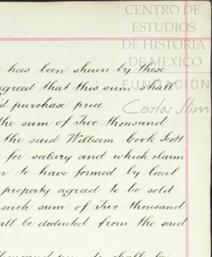 CENTRO DE
ESTUDIOS
DE HISTORIA
DE MEXICO
FUNDACIÓN
Carlos Slim
has been shown by these
agreed that this sum shall
purchase price
the sum of Two thousand
the said William Cook Scott
for salary and which claim
to have formed by local
property agreed to be sold
such sum of Two thousand
shall be deducted from the said